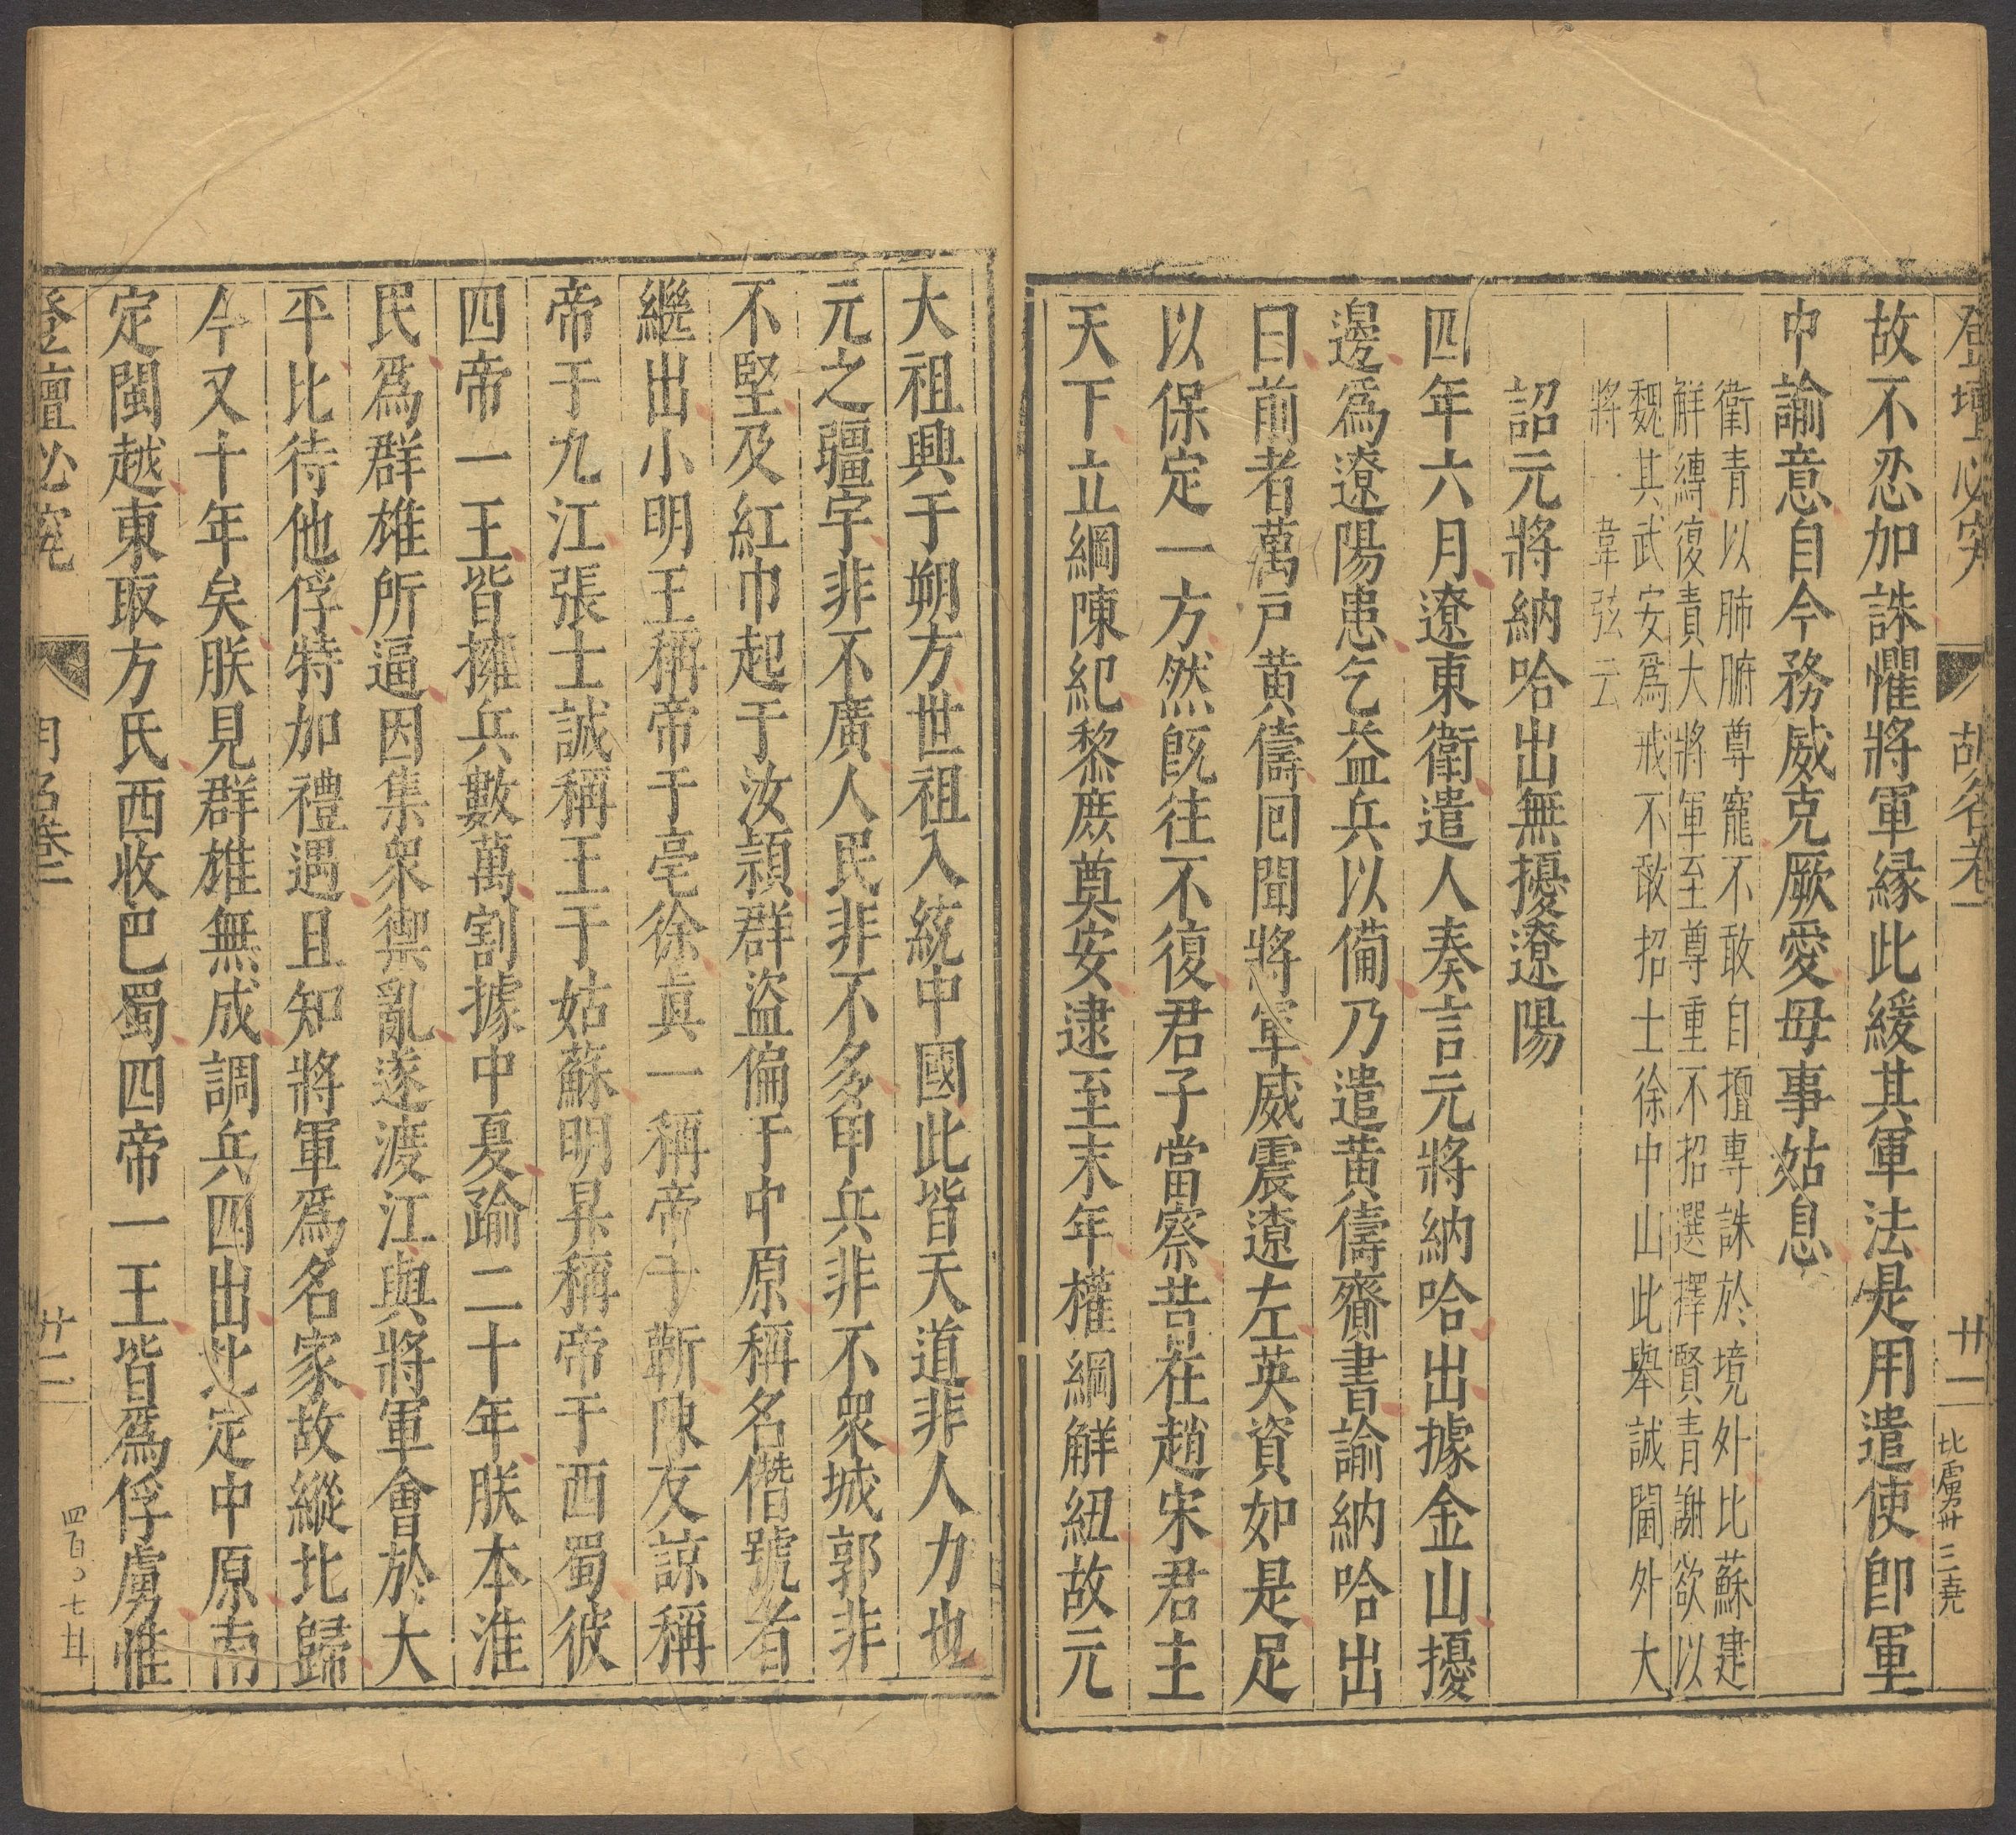 登壇必究 胡名卷一 廿一 北虜卅三堯
故不忍加誅懼將軍緣此緩其軍法是用遣使卽軍
中諭意自今務威克厥愛毋事姑息
衛青以肺腑尊寵不敢自擅專誅於境外比蘇建
觧縳復責大將軍至尊重不招選擇賢青謝欲以
魏其武安爲戒不敢招士徐中山此舉誠閫外大
將一韋弦云
詔元將納哈出無擾遼陽
四年六月遼東衛遣人奏言元將納哈出據金山擾
邊爲遼陽患乞益兵以備乃遣黄儔齎書諭納哈出
曰前者萬戶黄儔囘聞將軍威震遼左英資如是足
以保定一方然旣往不復君子當察昔在趙宋君主
天下立綱陳紀黎庶奠安逮至末年權綱觧紐故元
大祖興于朔方世祖入統中國此皆天道非人力也
元之疆宇非不廣人民非不多甲兵非不衆城郭非
不堅及紅巾起于汝潁群盜徧于中原稱名僭號者
繼出小明王稱帝于亳徐眞一稱帝于蘄陳友諒稱
帝于九江張士誠稱王于姑蘇明昇稱帝于西蜀彼
四帝一王皆擁兵數萬割據中夏踰二十年朕本淮
民爲群雄所逼因集衆禦亂遂渡江與將軍會於大
平比待他俘特加禮遇且知將軍爲名家故縱北歸
今又十年矣朕見群雄無成調兵四出北定中原南
定閩越東取方氏西收巴蜀四帝一王皆爲俘虜惟
登壇必究 胡名卷一 廿二 四百〇七